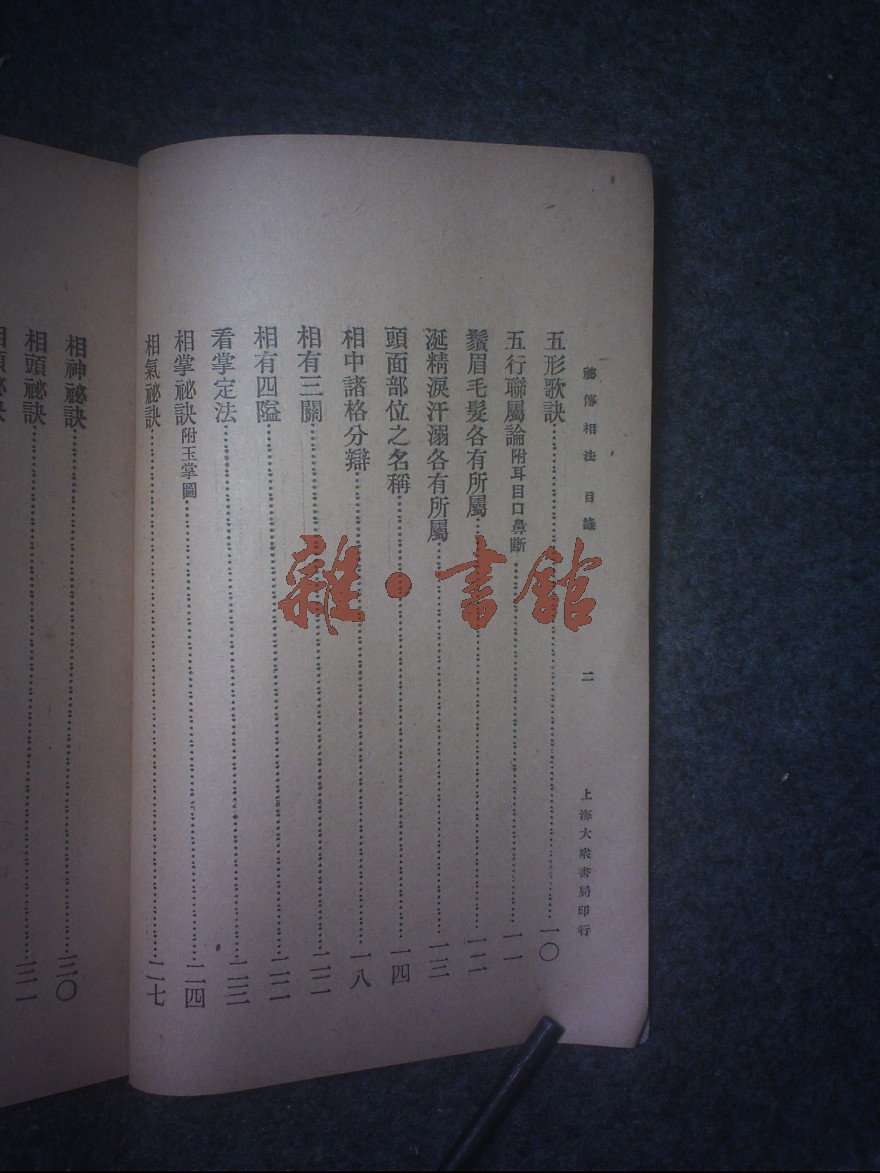 祕傳相法 目錄 二 上海大衆書局印行
五形歌訣 一〇
五行聯屬論附耳目口鼻斷 一一
鬚眉毛髮各有所屬 一二
涎精淚汗溺各有所屬 一三
頭面部位之名稱 一四
相中諸格分辯 一八
相有三關 二二
相有四隘 二二
看掌定法 二三
相掌祕訣附玉掌圖 二四
相氣祕訣 二七
相神祕訣 三〇
相頭祕訣 三一
雜·書館